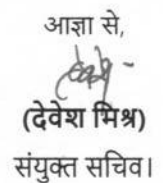 आज्ञा से,
(देवेश मिश्र)
संयुक्त सचिव।